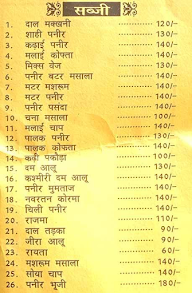 सब्जी
1. दाल मक्खनी 120/-
2. शाही पनीर 130/-
3. कढ़ाई पनीर 140/-
4. मलाई कोफ्ता 130/-
5. मिक्स वेज 130/-
6. पनीर बटर मसाला 140/-
7. मटर मशरूम 140/-
8. मटर पनीर 130/-
9. पनीर पसंदा 140/-
10. चना मसाला 100/-
11. मलाई चाप 140/-
12. पालक पनीर 130/-
13. पालक कोफता 140/-
14. कढ़ी पकोड़ा 100/-
15. दम आलू 130/-
16. कश्मीरी दम आलू 140/-
17. पनीर मुमताज 140/-
18. नवरतन कोरमा 140/-
19. चिली पनीर 140/-
20. राजमा 110/-
21. दाल तड़का 90/-
22. जीरा आलू 90/-
23. रायता 60/-
24. मशरूम मसाला 140/-
25. सोया चाप 140/-
26. पनीर भूजी 180/-